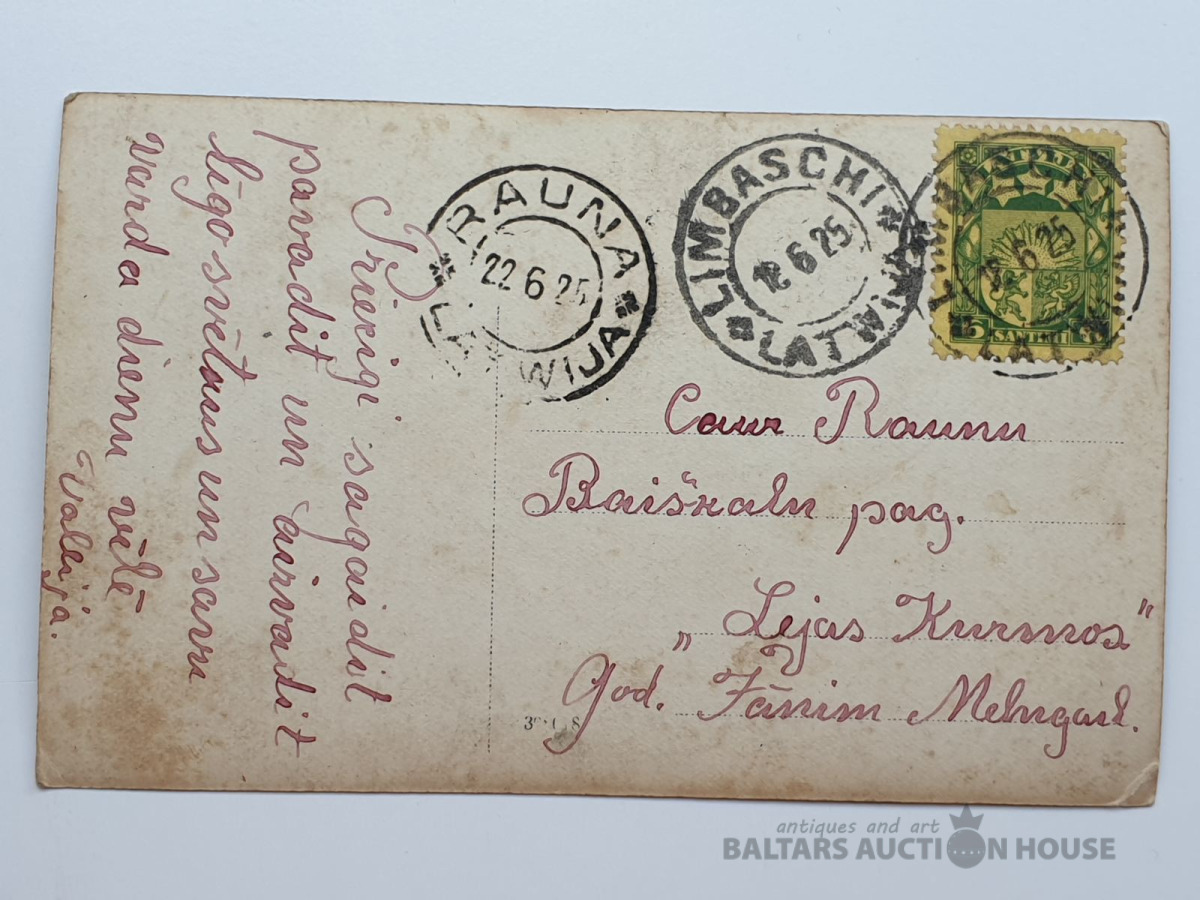 Priecigi sagaidit
pavadit un aizvadit
līgo svētkus un savu
varda dienu vēlē
Wallija.
RAUNA
22 6 25
LATWIJA
LIMBASCHI
18 6 25
LATWIJA
LATVIJA
6 25
SANTIMI
Caur Raunu
Baižkaln pag.
„Lejas Kurmos"
God. Jānim Mehngail.
antiques and art
BALTARS AUCTION HOUSE